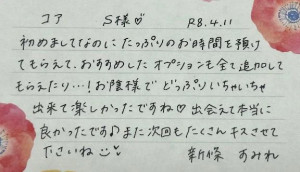 コア S様♡ R8.4.11
初めましてなのに たっぷりのお時間を預け
てもらえて、おすすめした オプションも全て追加して
もらえたり…！お陰様で どっぷりいちゃいちゃ
出来て楽しかったですね♡ 出会えて本当に
良かったです♪また次回もたくさんキスさせて
下さいね 新條 すみれ